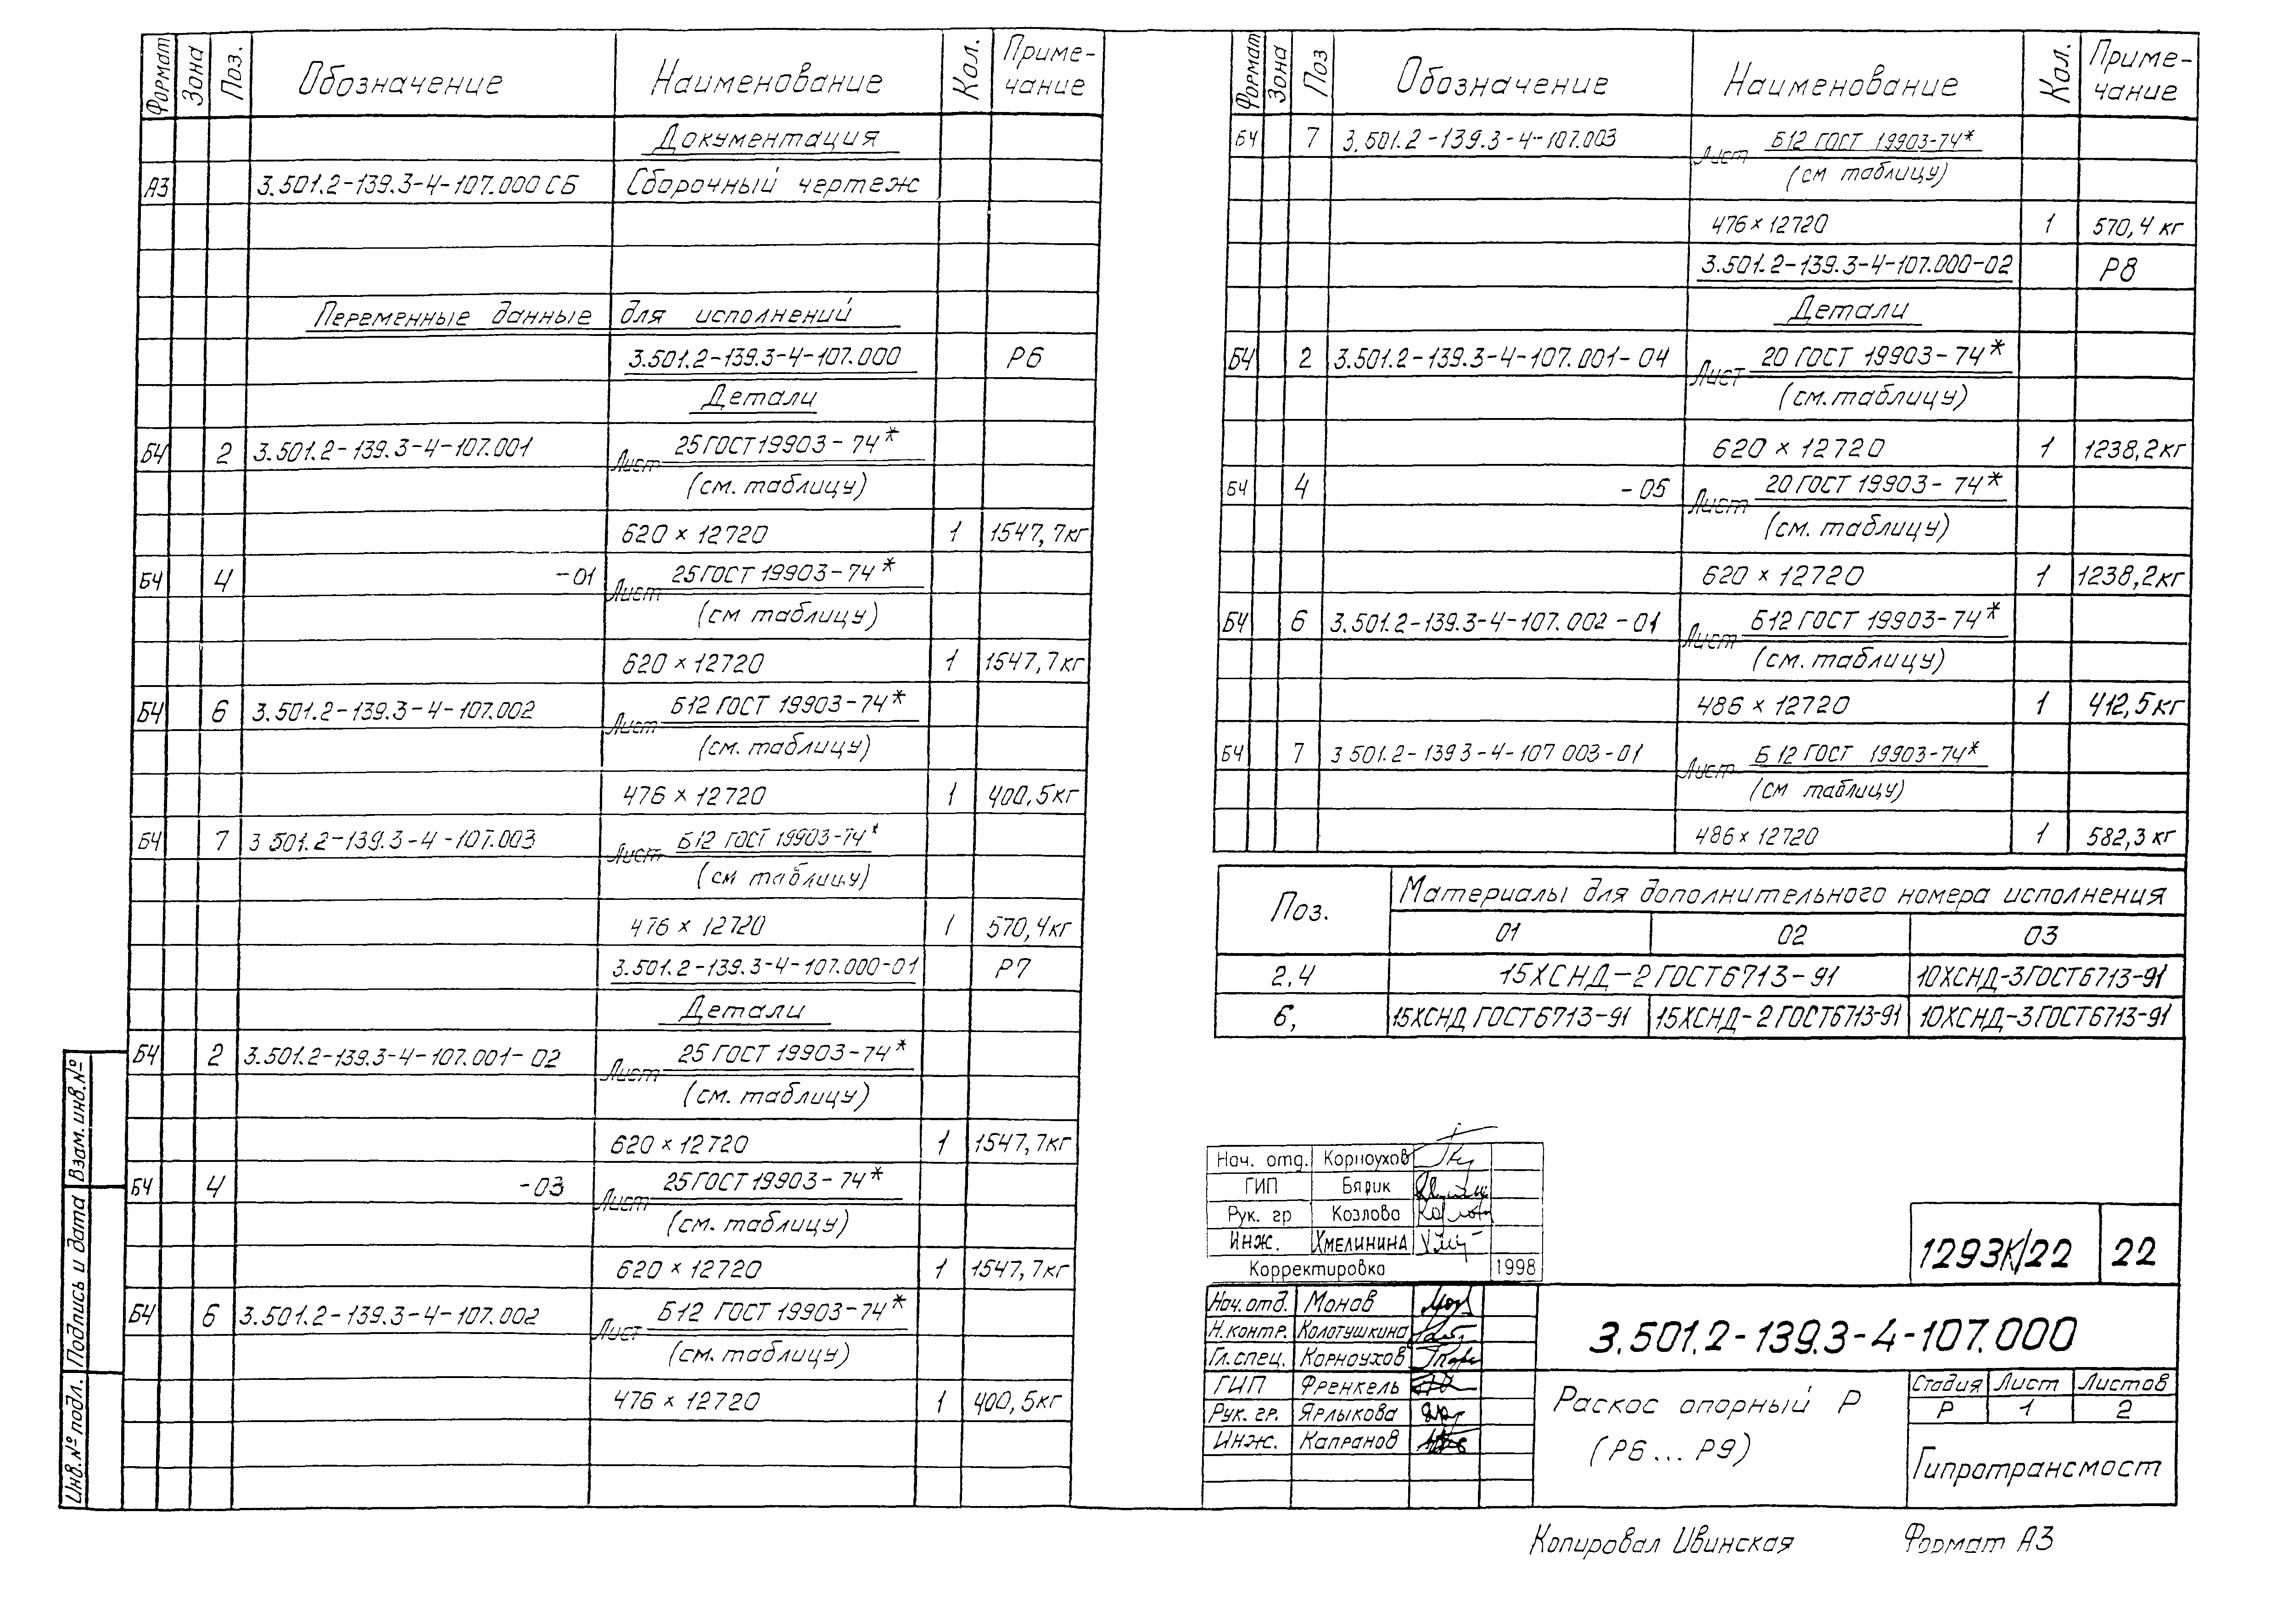 Формат Зона Поз. Обозначение Наименование Кол. Приме-
чание
Документация
А3 3.501.2-139.3-4-107.000 СБ Сборочный чертеж
Переменные данные для исполнений
3.501.2-139.3-4-107.000 Р6
Детали
БЧ 2 3.501.2-139.3-4-107.001 Лист 25 ГОСТ 19903-74*
(см. таблицу)
620 × 12720 1 1547,7кг
БЧ 4 -01 Лист 25 ГОСТ 19903-74*
(см таблицу)
620 × 12720 1 1547,7кг
БЧ 6 3.501.2-139.3-4-107.002 Лист Б12 ГОСТ 19903-74*
(см. таблицу)
476 × 12720 1 400,5кг
БЧ 7 3 501.2-139.3-4-107.003 Лист Б12 ГОСТ 19903-74*
(см таблицу)
476 × 12720 1 570,4кг
3.501.2-139.3-4-107.000-01 Р7
Детали
БЧ 2 3.501.2-139.3-4-107.001-02 Лист 25 ГОСТ 19903-74*
(см. таблицу)
620 × 12720 1 1547,7кг
БЧ 4 -03 Лист 25 ГОСТ 19903-74*
(см. таблицу)
620 × 12720 1 1547,7кг
БЧ 6 3.501.2-139.3-4-107.002 Лист Б12 ГОСТ 19903-74*
(см. таблицу)
476 × 12720 1 400,5кг
Формат Зона Поз Обозначение Наименование Кол. Приме-
чание
БЧ 7 3.501.2-139.3-4-107.003 Лист Б12 ГОСТ 19903-74*
(см таблицу)
476 × 12720 1 570,4 кг
3.501.2-139.3-4-107.000-02 Р8
Детали
БЧ 2 3.501.2-139.3-4-107.001-04 Лист 20 ГОСТ 19903-74*
(см. таблицу)
620 × 12720 1 1238,2кг
БЧ 4 -05 Лист 20 ГОСТ 19903-74*
(см. таблицу)
620 × 12720 1 1238,2кг
БЧ 6 3.501.2-139.3-4-107.002-01 Лист Б12 ГОСТ 19903-74*
(см. таблицу)
486 × 12720 1 412,5кг
БЧ 7 3 501.2-139 3-4-107 003-01 Лист Б 12 ГОСТ 19903-74*
(см таблицу)
486 × 12720 1 582,3 кг
Поз. Материалы для дополнительного номера исполнения
01 02 03
2,4 15ХСНД-2 ГОСТ6713-91 10ХСНД-3ГОСТ6713-91
6, 15ХСНД ГОСТ6713-91 15ХСНД-2ГОСТ6713-91 10ХСНД-3ГОСТ6713-91
Нач. отд. Корноухов
ГИП Бярик
Рук. гр Козлова
Инж. Хмелинина
Корректировка 1998
1293К/22 22
Нач.отд. Монов
Н.контр. Колотушкина
Гл.спец. Корноухов
ГИП Френкель
Рук. гр. Ярлыкова
Инж. Капранов
3.501.2-139.3-4-107.000
Раскос опорный Р
(Р6...Р9)
Стадия Лист Листов
Р 1 2
Гипротрансмост
Взам.инв.№
Подпись и дата
Инв.№ подл.
Копировал Ивинская Формат А3